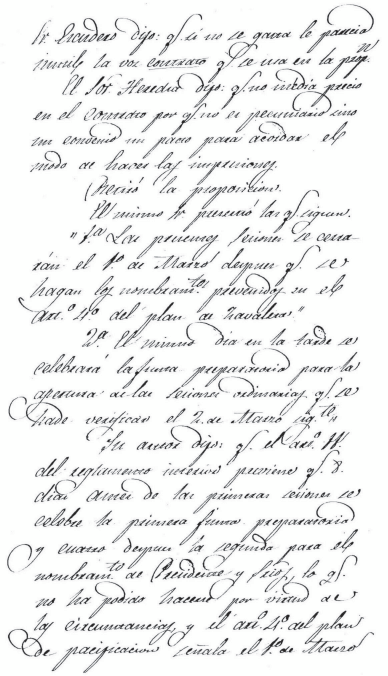 Sr Escudero dijo: q.e si no se gana le parecia
inutil la voz contrato q.e se usa en la prop.n
El Sor Heredia dijo: q.e no media precio
en el contrato por q.e no es pecuniario sino
un convenio un pacto para acordar el
modo de hacer las impresiones.
Retiró la proposicion.
El mismo Sr presentó las q.e siguen.
" 1.a Las presentes sesiones se cerra-
rán el 1.o de Marzo despues q.e se
hagan los nombram.tos prevenidos en el
art.o 4.o del plan de Zavaleta"
2.a El mismo dia en la tarde se
celebrará la junta preparatoria para la
apertura de las sesiones ordinarias q.e se
ha de verificar el 2. de Marzo sig.te
Su autor dijo: q.e el art.o
del reglamento interior previene q.e 8.
dias antes de las primeras sesiones se
celebre la primera junta preparatoria
y cuatro despues la segunda para el
nombram.to de Presidente y Srios, lo q.e
no ha podido hacerse por virtud de
las circunstancias, y el art.o 4.o del plan
de pacificacion señala el 1.o de Marzo